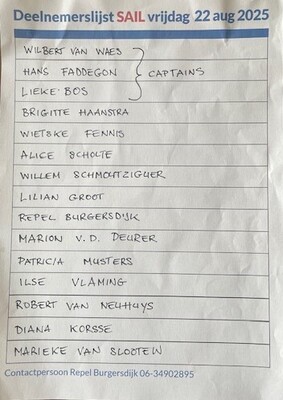 Deelnemerslijst SAIL vrijdag 22 aug 2025
WILBERT VAN WAES
HANS FADDEGON } CAPTAINS
LIEKE BOS
BRIGITTE HAANSTRA
WIETSKE FENNIS
ALICE SCHOLTE
WILLEM SCHMOUTZIGUER
LILIAN GROOT
REPEL BURGERSDIJK
MARION V.D. DEURER
PATRICIA MUSTERS
ILSE VLAMING
ROBERT VAN NEUHUYS
DIANA KORSSE
MARIEKE VAN SLOOTEN
Contactpersoon Repel Burgersdijk 06-34902895